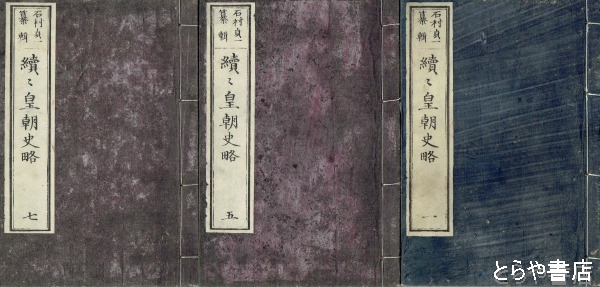 石村貞一
纂輯
續〻皇朝史略
七
石村貞一
纂輯
續〻皇朝史略
五
石村貞一
纂輯
續〻皇朝史略
一
とらや書店